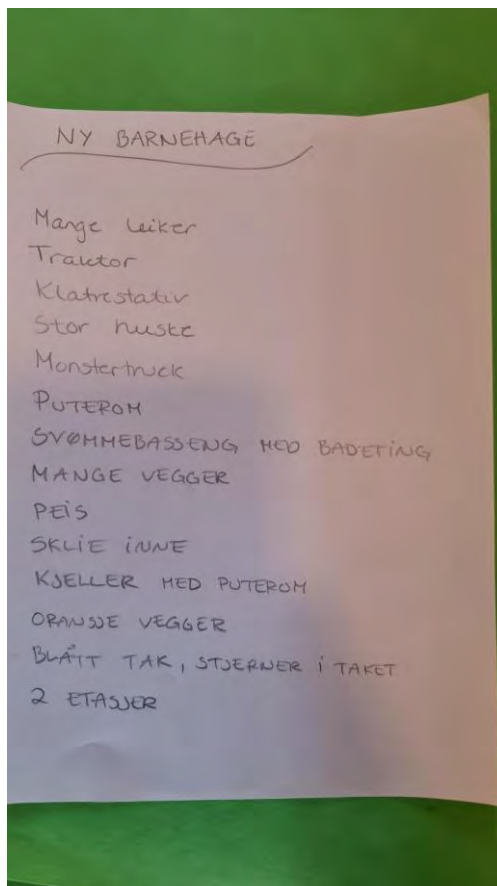 NY BARNEHAGE
Mange leiker
Traktor
Klatrestativ
Stor huske
Monstertruck
PUTEROM
SVØMMEBASSENG MED BADETING
MANGE VEGGER
PEIS
SKLIE INNE
KJELLER MED PUTEROM
ORANSJE VEGGER
BLÅTT TAK, STJERNER I TAKET
2 ETASJER